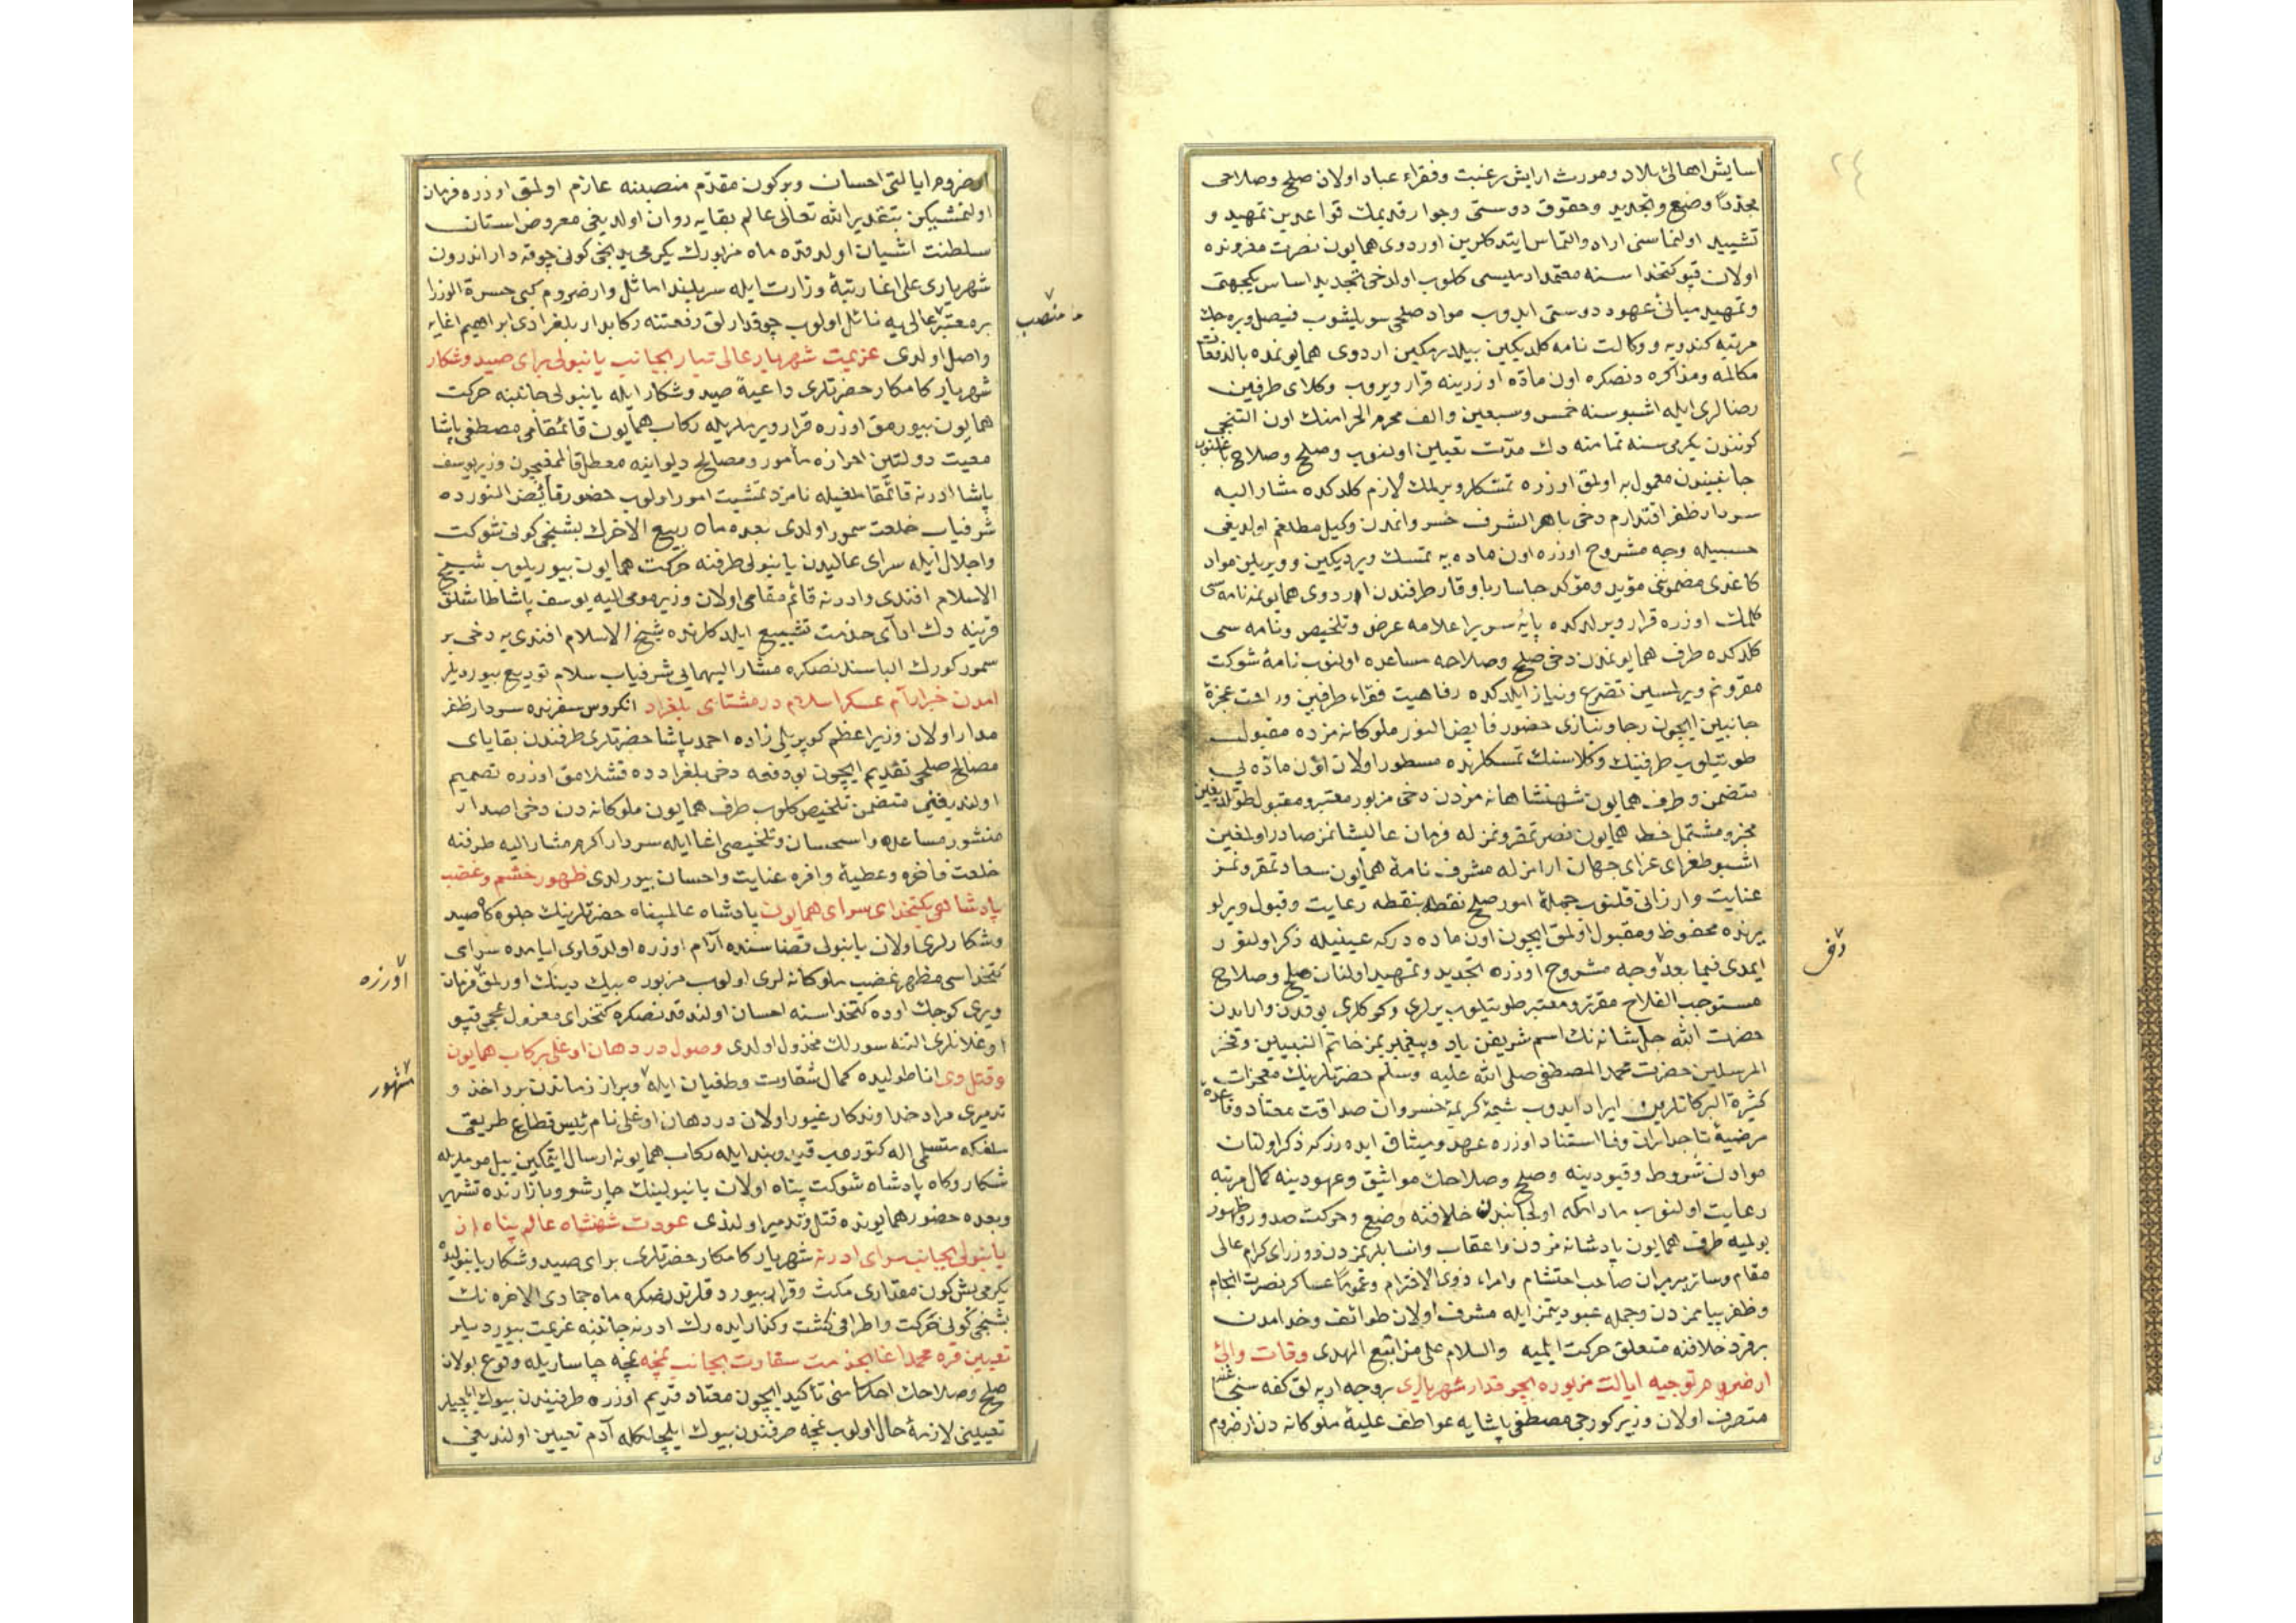 ٢٤
اسایش اهالئ بلاد و مورث ارایش رغبت و فقراء عباد اولان صلح و صلاحی
مجددًا وضع و تجدید و حقوق دوستی و جوار قدیمك قواعدین تمهید و
تشیید اولنماسنی اراد و التماس ایتدکلرین اوردوی همایون نصرت مقرونده
اولان قپو کتخداسنه معتمد ادملیسی کلوب اولدخی تجدید اساس یکجهتی
و تمهید مبانئ عهود دوستی ایدوب مواد صلحی سویلیشوب فیصل ویره جك
مرتبه کندویه و وکالت نامه کلدیکین بیلدرمکین اردوی همایونمده بالدفعات
مکالمه و مذاکره دنصکره اون مادّه اوزرینه قرار ویروب وکلای طرفین
رضالری ایله اشبو سنه خمس و سبعین و الف محرم الحرامنك اون التنجی
کونندن یکرمی سنه تمامنه دك مدّت تعیین اولنوب و صلح و صلاح باغلنوب
جانبیندن معمول به اولمق اوزره تمسکلر ویرلمك لازم کلدکده مشار الیه
سردار ظفر اقتدارم دخی باهر الشرف خسروانمدن وکیل مطلقم اولدیغی
حسبیله وجه مشروح اوزره اون ماده یه تمسك ویردیکین و ویریلین مواد
کاغدی مضمونی مؤید و مؤکد چاسار باوقار طرفندن اردوی همایونمه نامه سی
کلمك اوزره قرار ویرلدکده پایۀ سریر اعلامه عرض و تلخیص و نامه سی
کلدکده طرف همایونمدن دخی صلح و صلاحه مساعده اولنوب نامۀ شوکت
مقرونم ویرلمسین تضرع و نیاز ایلدکده رفاهیت فقراء طرفین و راحت عجزۀ
جانبین ایچون رجا و نیازی حضور فایض النور ملوکانه مزده مقبول
طوتیلوب طرفینك وکلاسنك تمسکلرنده مسطور اولان اون مادّه یی
متضمن و طرف همایون شهنشاهانه مزدن دخی مزبور معتبر و مقبول طوتلدیغین
مخبر و مشتمل خط همایون نصرتمقرونمز له فرمان عالیشانمز صادر اولمغین
اشبو طغرای غرای جهان ارامزله مشرف نامۀ همایون سعادتمقرونمز
عنایت و ارزانی قلنوب جملۀ امور صلح نقطه بنقطه رعایت و قبول ویرلو
یرنده محفوظ و مقبول اولمق ایچون اون ماده درکه عینیله ذکر اولنور
دفر
ایمدی فیما بعد وجه مشروح اوزره تجدید و تمهید اولنان صلح و صلاح
مستوجب الفلاح مقرّر و معتبر طوتیلوب یرلری و کوکلری یوقدن وار ایدن
حضرت الله جل شانه نك اسم شریفن یاد و پیغمبریمز خاتم النبیین و فخر
المرسلین حضرت محمد المصطفی صلی الله علیه وسلم حضرتلرینك معجزات
کثیرة البرکاتلرین ایراد ایدوب شیمۀ کریمۀ خسروان صداقت معتاد و قاعدۀ
مرضیۀ تاجداران وفا استناد اوزره عهد و میثاق ایده رزکه ذکر اولنان
موادن شروط و قیودینه و صلح و صلاحك مواثیق و عهودینه کمال مرتبه
رعایت اولنوب مادامکه اول جانبدن خلافنه وضع و حرکت صدور و ظهور
بولمیه طرف همایون پادشاهانه مزدن و اعقاب و انسابلریمزدن و وزرای کرام عالی
مقام و سائر میرمیران صاحب احتشام و امراء ذوی الاحترام و عمومًا عساکر نصرت انجام
و ظفر پیاممزدن و جمله عبودیتمز ایله مشرف اولان طوائف و خدامدن
بر فرد خلافنه متعلق حرکت ایلمیه والسلام علی من اتبع الهدی وفات والئ
ارضروم و توجیه ایالت مزبوره بچوقدار شهریاری بر وجه ارپه لق کفه سنجاغنه
متصرف اولان وزیر کورجی مصطفی پاشایه عواطف علیۀ ملوکانه دن ارضروم
ارضروم ایالتی احسان و بوکون مقدّم منصبنه عازم اولمق اوزره فرمان
اولنمشیکن بتقدیر الله تعالی عالم بقایه روان اولدیغی معروض استان
سلطنت اشیان اولدقده ماه مزبورك یکرمی یدنجی کونی چوقه دار اندرون
شهریاری علی اغا رتبۀ وزارت ایله سربلند اماثل و ارضروم کبی حسرة الوزرا
منصب
بر معتبر عالی یه نائل اولوب چوقدارلق رفعتنه رکابدار بلغرادی ابراهیم اغایه
واصل اولدی عزیمت شهریار عالی تبار بجانب یانبولی برای صید و شکار
شهریار کامکار حضرتلری داعیۀ صید و شکار ایله یانبولی جانبنه حرکت
همایون بیورمق اوزره قرار ویرملریله رکاب همایون قائمقامی مصطفی پاشا
معیت دولتین احرازه مأمور و مصالح دیوانیه معطل قالمغیچون وزیر یوسف
پاشا ادرنه قائمقاملغیله نامزد تمشیت امور اولوب حضور فائض النورده
شرفیاب خلعت سمور اولدی بعده ماه ربیع الاخرك بشنجی کونی شوکت
و اجلال ایله سرای عالیدن یانبولی طرفنه حرکت همایون بیوریلوب شیخ
الاسلام افندی و ادرنه قائم مقامی اولان وزیر مومی الیه یوسف پاشا طاشلق
قرینه دك ادآی خدمت تشییع ایلدکلرنده شیخ الاسلام افندی یه دخی بر
سمور کورك الباسندنصکره مشار الیهمایی شرفیاب سلام تودیع بیوردیلر
امدن خبر ارام عسکر اسلام در مشتای بلغراد انکروس سفرنده سردار ظفر
مدار اولان وزیر اعظم کوپریلی زاده احمد پاشا حضرتلری طرفندن بقایای
مصالح صلحی تقدیم ایچون بو دفعه دخی بلغرادده قشلامق اوزره تصمیم
اولندیغنی متضمن تلخیص کلوب طرف همایون ملوکانه دن دخی اصدار
منشور مساعده و استحسان و تلخیصی اغا ایله سردار اکرم مشار الیه طرفنه
خلعت فاخره و عطیۀ وافره عنایت و احسان بیورلدی ظهور خشم و غضب
پادشاهی بکتخدای سرای همایون پادشاه عالمپناه حضرتلرینك جلوه کاه صید
و شکارلری اولان یانبولی قضاسنده آرام اوزره اولدقلری ایامده سرای
کتخداسی مظهر غضب ملوکانه لری اولوب مزبوره بیك دینك اورلمق فرمان
اوزره
ویری کوجك اوده کتخداسنه احسان اولندقدنصکره کتخدای معزول عجمی قپو
اوغلانلری التنه سورلك مخذول اولدی وصول دردهان اوغلی برکاب همایون
و قتل وی اناطولیده کمال شقاوت و طغیان ایله و براز زماندن برو اخذ و
مشهور
تدمیری مراد خداوندکار غیور اولان دردهان اوغلی نام رئیس قطاع طریقی
سلفکه متسلمی اله کتوروب قید و بند ایله رکاب همایونه ارسال ایتمکین
شکار و کاه پادشاه شوکت پناه اولان یانبولینك چارشو و بازارنده تشهیر
و بعده حضور همایونده قتل و تدمیر اولندی عودت شهنشاه عالم پناه از
یانبولی بجانب سرای ادرنه شهریار کامکار حضرتلری برای صید و شکار یانبولیده
یکرمی بش کون مقداری مکث و قرار بیوردقلرندنصکره ماه جمادی الاخره نك
بشنجی کونی حرکت و اطرافی کشت و کذار ایده رك ادرنه جانبنه عزیمت بیوردیلر
تعیین قره محمد اغا بخدمت سفارت بجانب نمچه نمچه چاساریله وقوع بولان
صلح و صلاحك احکامنی تأکید ایچون معتاد قدیم اوزره طرفیندن بیوك ایلچیلر
تعیینی لازمۀ حال اولوب نمچه طرفندن بیوك ایلچیلكله آدم تعیین اولندیغی